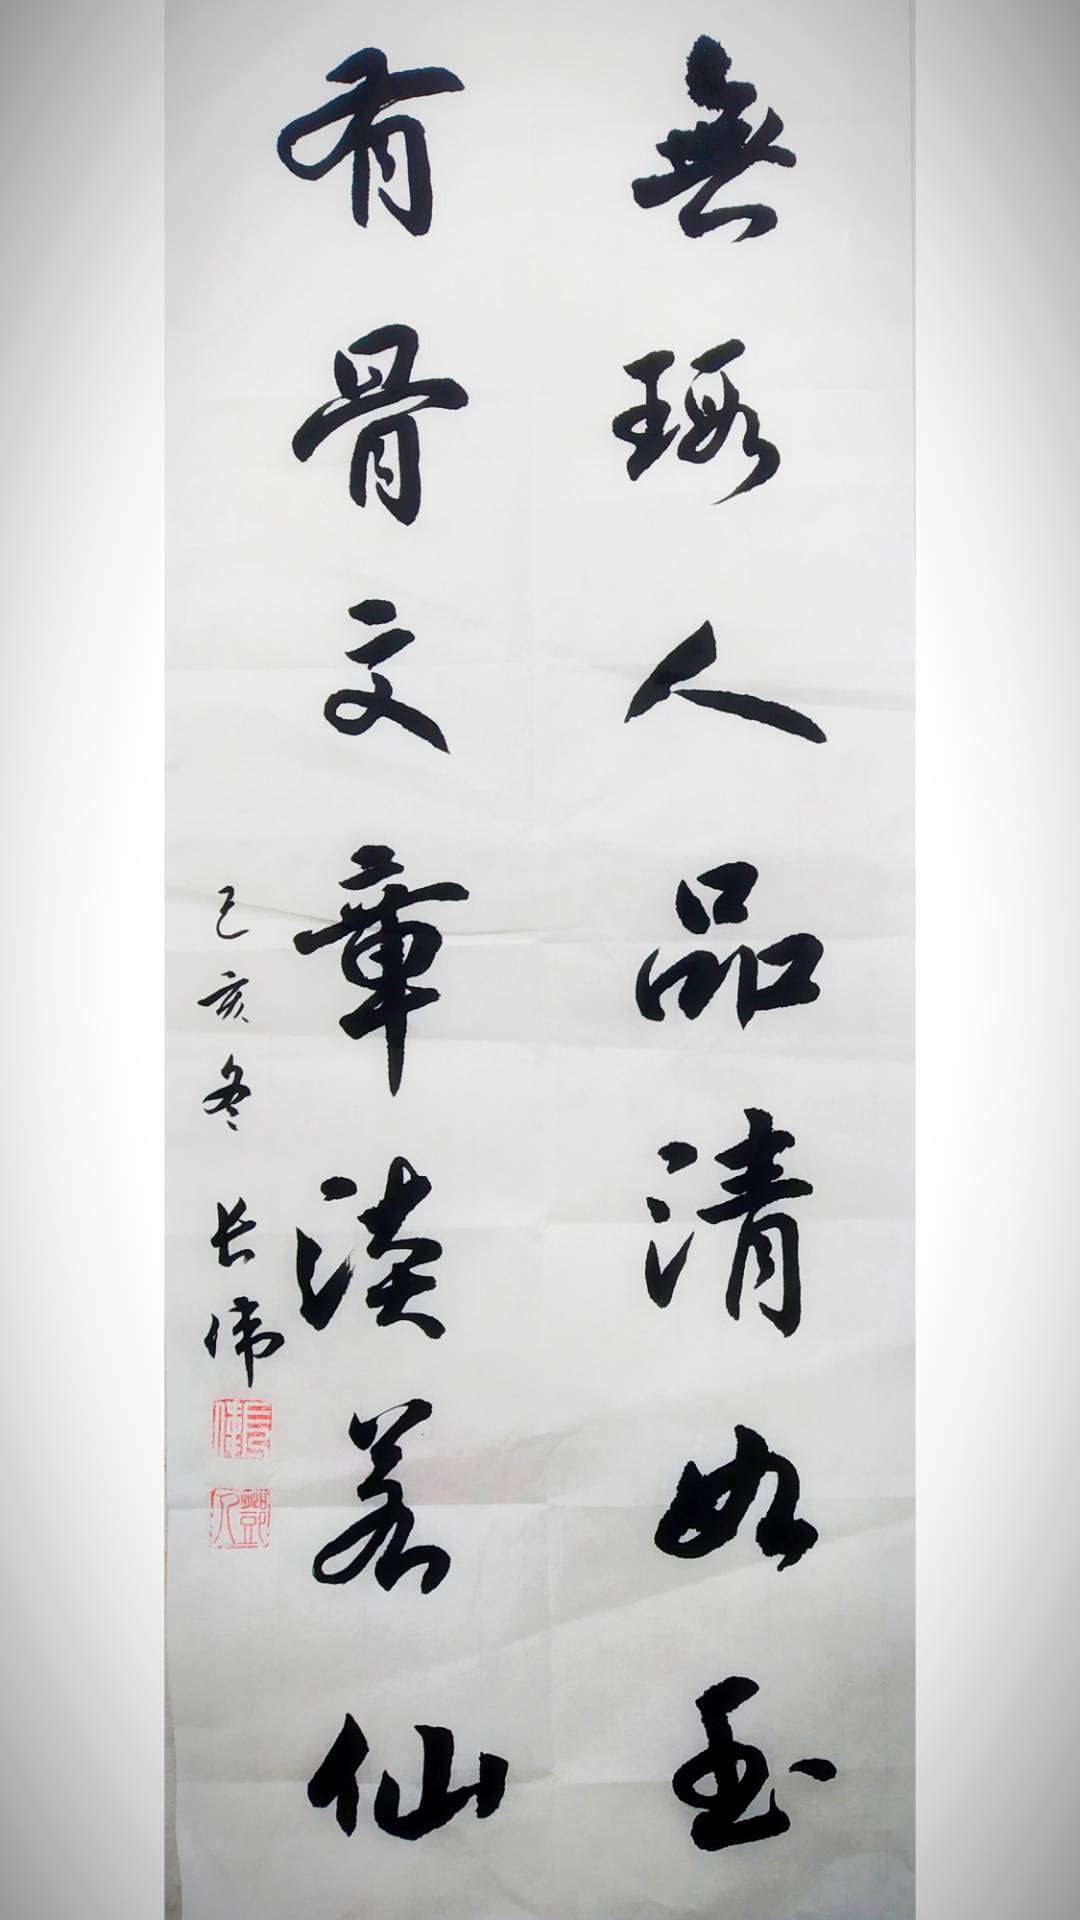 無瑕人品清如玉
有骨文章淡若仙
己亥冬 长伟